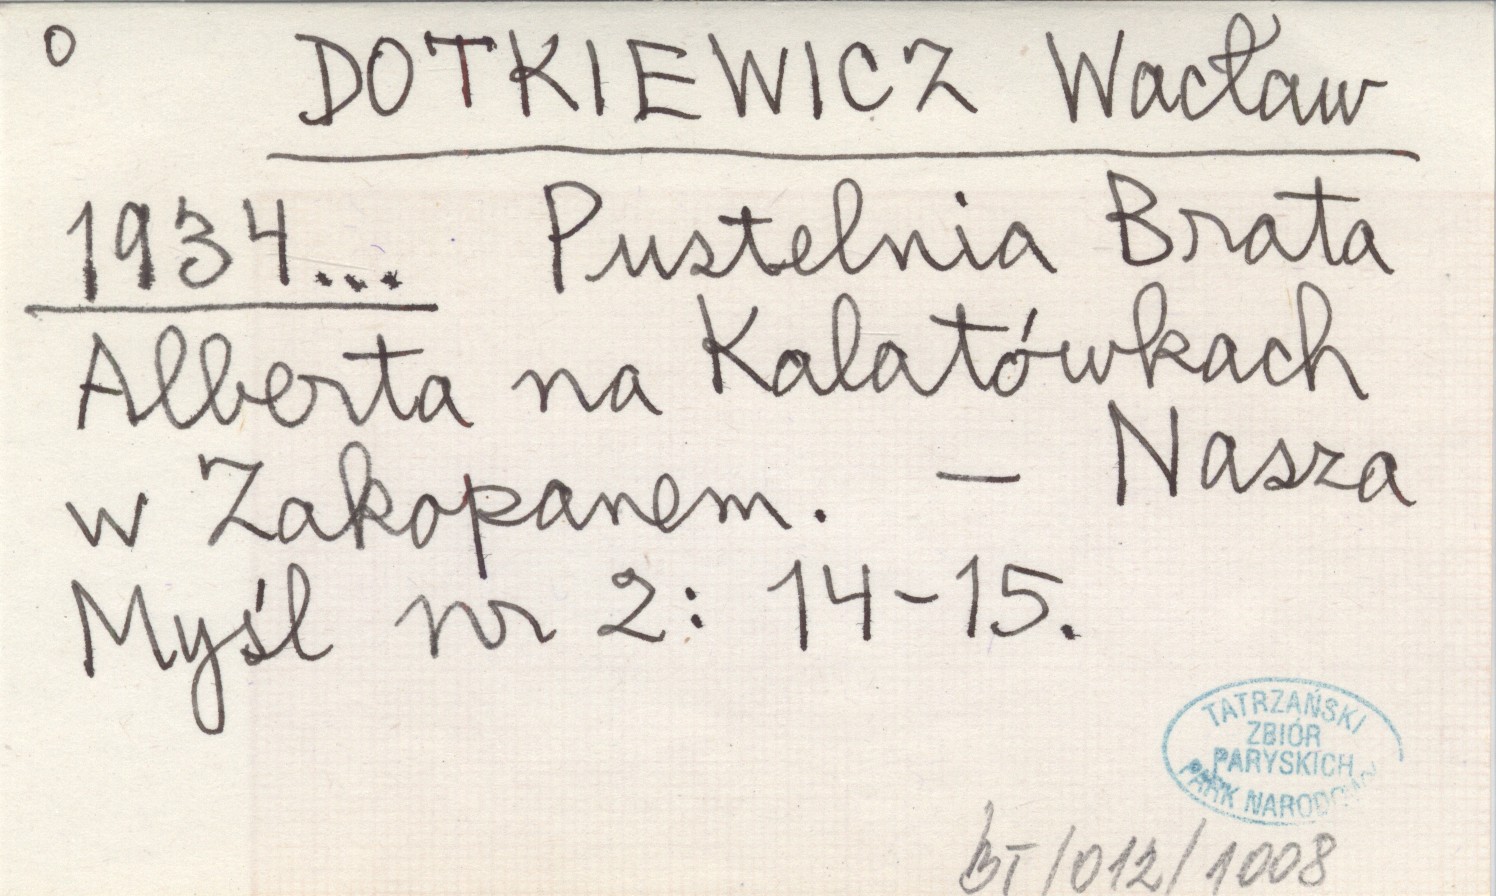 o
DOTKIEWICZ Wacław
1934... Pustelnia Brata
Alberta na Kalatówkach
w Zakopanem. – Nasza
Myśl nr 2: 14-15.
TATRZAŃSKI
ZBIÓR
PARYSKICH
PARK NARODOWY
BT/012/1008